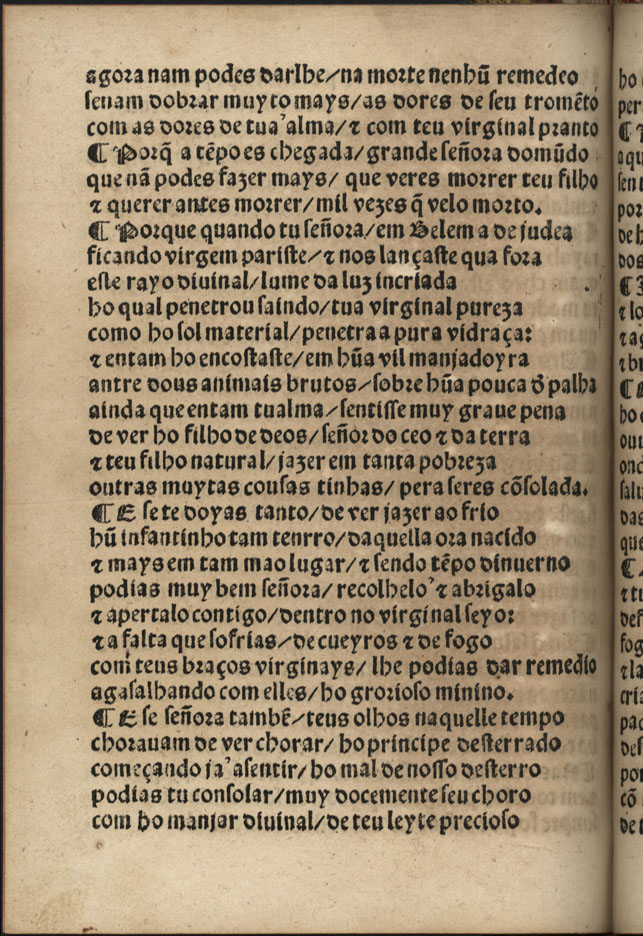 agora nam podes darlhe/na morte nenhũ remedeo
seriam dobrar muyto mays/as dores de seu tromẽto
com as dores de tua'alma/⁊ com teu virginal pranto
¶ Porq̃ a tẽpo es chegada/grande señora do mũdo
que nã podes fazer mays/ que veres morrer teu filho
⁊ querer antes morrer/mil vezes q̃ velo morto.
¶ Porque quando tu señora/em Belem a de judea
ficando virgem pariste/⁊ nos lançaste qua fora
este rayo diuinal/lume da luz incriada
ho qual penetrou saindo/tua virginal pureza
como ho sol material/penetra a pura vidraça:
⁊ entam ho encostaste/em hũa vil manjadoyra
antre dous animais brutos/sobre hũa pouca d̃ palha
ainda que entam tualma/sentisse muy graue pena
de ver ho filho de deos/señor do ceo ⁊ da terra
⁊ teu filho natural/jazer em tanta pobreza
outras muytas cousas tinhas/pera seres cõsolada.
¶ E se te doyas tanto/de ver jazer ao frio
hũ infantinho tam tenrro/daquella ora nacido
⁊ mays em tam mao lugar/⁊ sendo tẽpo dinuerno
podias muy bem señora/recolhelo'⁊ abrigalo
⁊ apertalo contigo/dentro no virginal seyo:
⁊ a falta que sofrias/de cueyros ⁊ de fogo
com teus braços virginays/ lhe podias dar remedio
agasalhando com elles/ho grorioso minino.
¶ E se señora tambẽ/teus olhos naquelle tempo
chorauam de ver chorar/ho principe desterrado
começando ja'asentir/ho mal de nosso desterro
podias tu consolar/muy docemente seu choro
com ho manjar diuinal/de teu leyte precioso